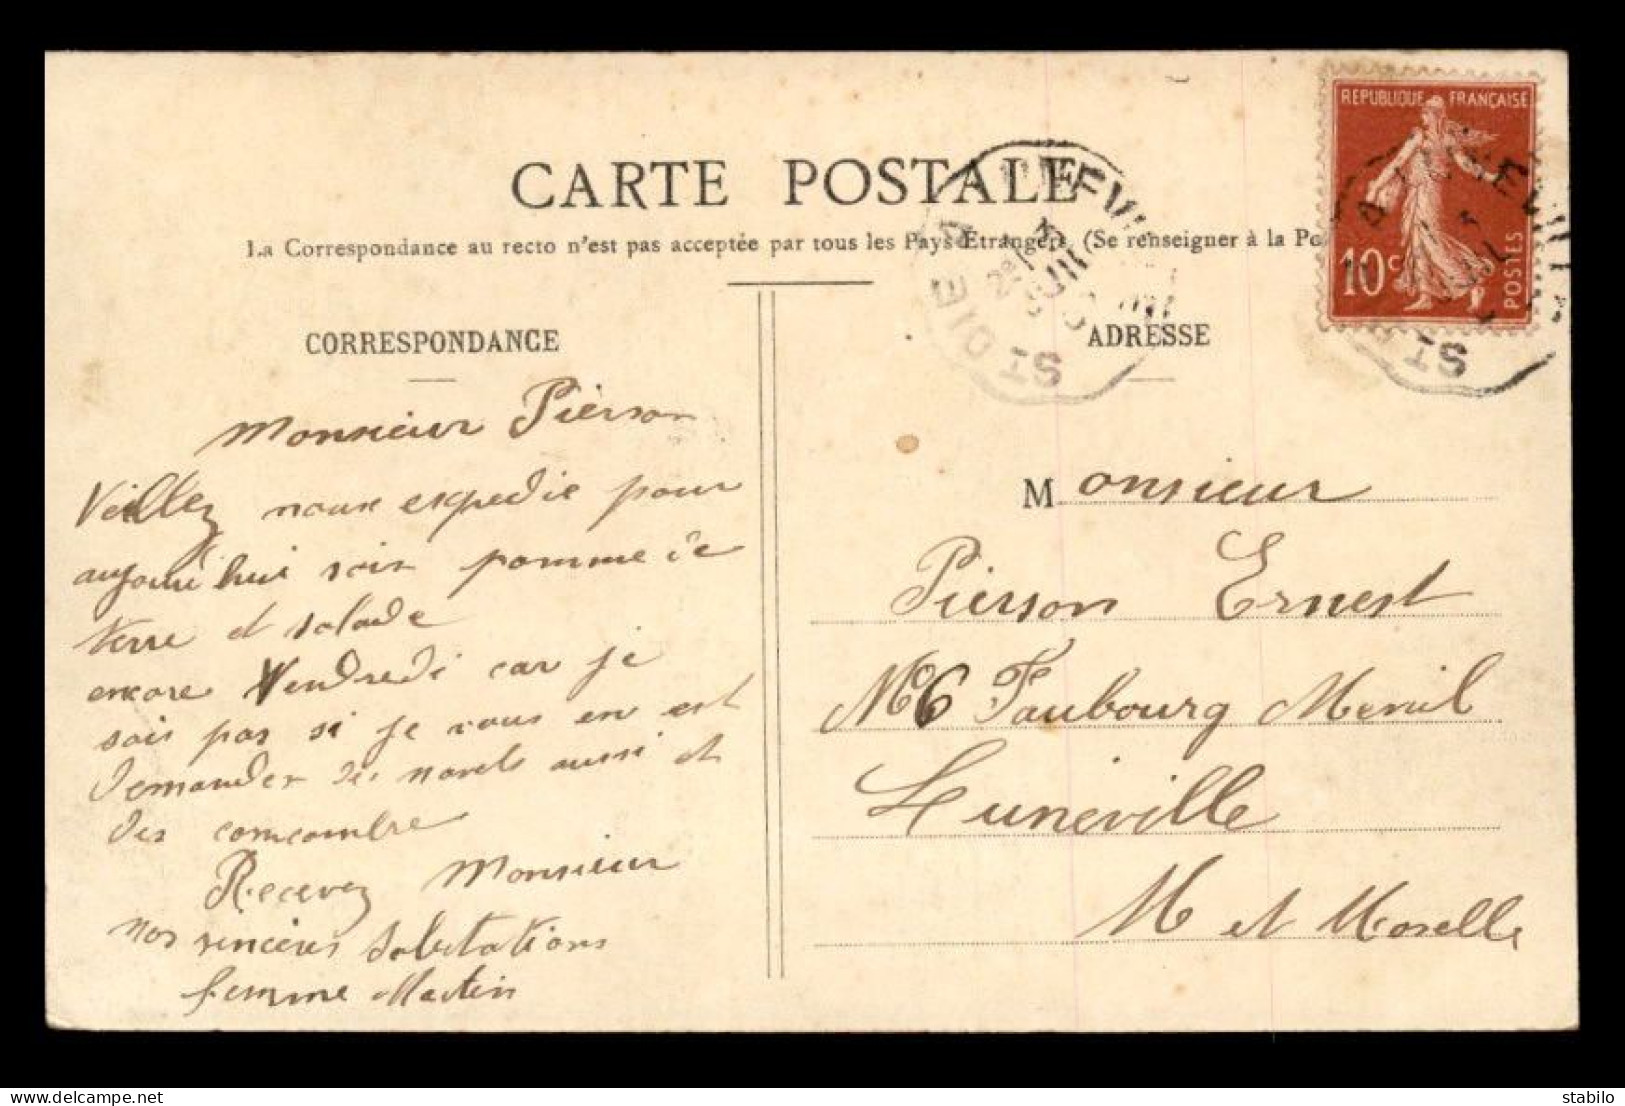 CARTE POSTALE
La Correspondance au recto n'est pas acceptée par tous les Pays Étrangers (Se renseigner à la Po
CORRESPONDANCE
Monsieur Pierson
Veillez nous expedie pour
aujourd'hui soir pomme de
terre et salade
encore Vendredi car je
sais pas si je vous en est
demander des navets aussi et
des comcombre
Recevez Monsieur
nos sincères Salutations
femme Martin
REPUBLIQUE FRANÇAISE
10c
POSTES
ST DIE A
ST
ADRESSE
Monsieur
Pierson Ernest
No 6 Faubourg Menil
Luneville
M et Moselle
delcampe.net
stabilo